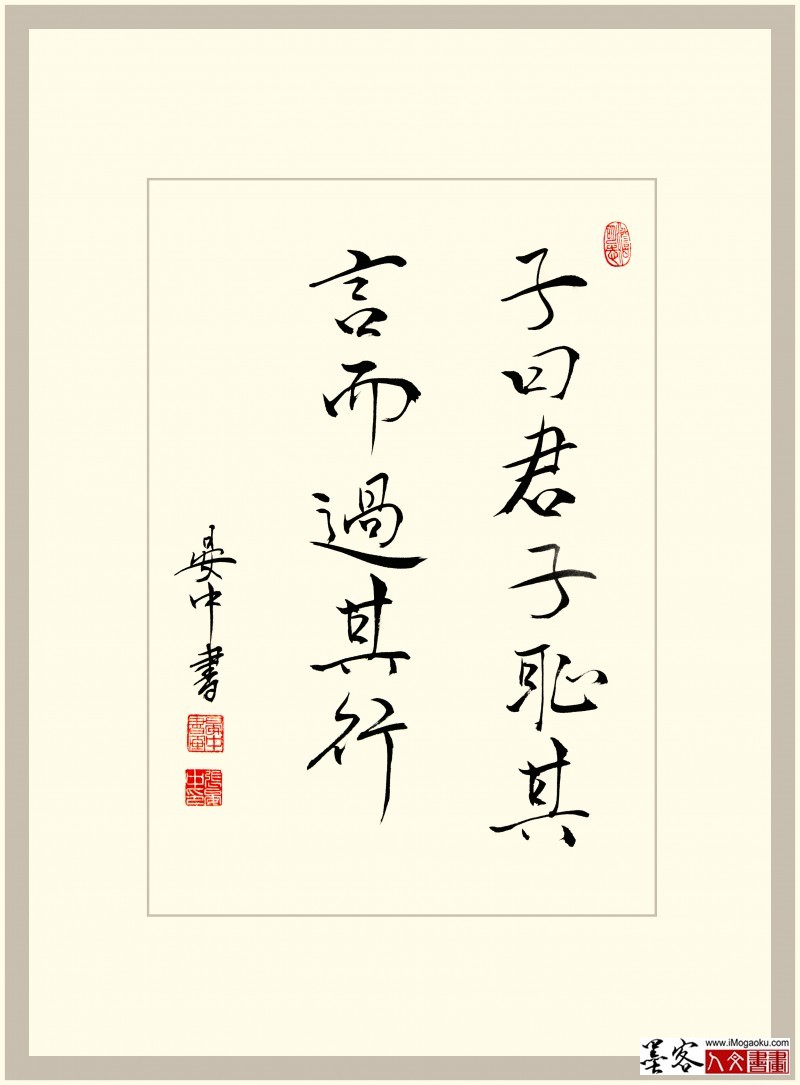 子曰君子恥其
言而過其行
晏中書
www.iMogaoku.com
墨客
人文書畫